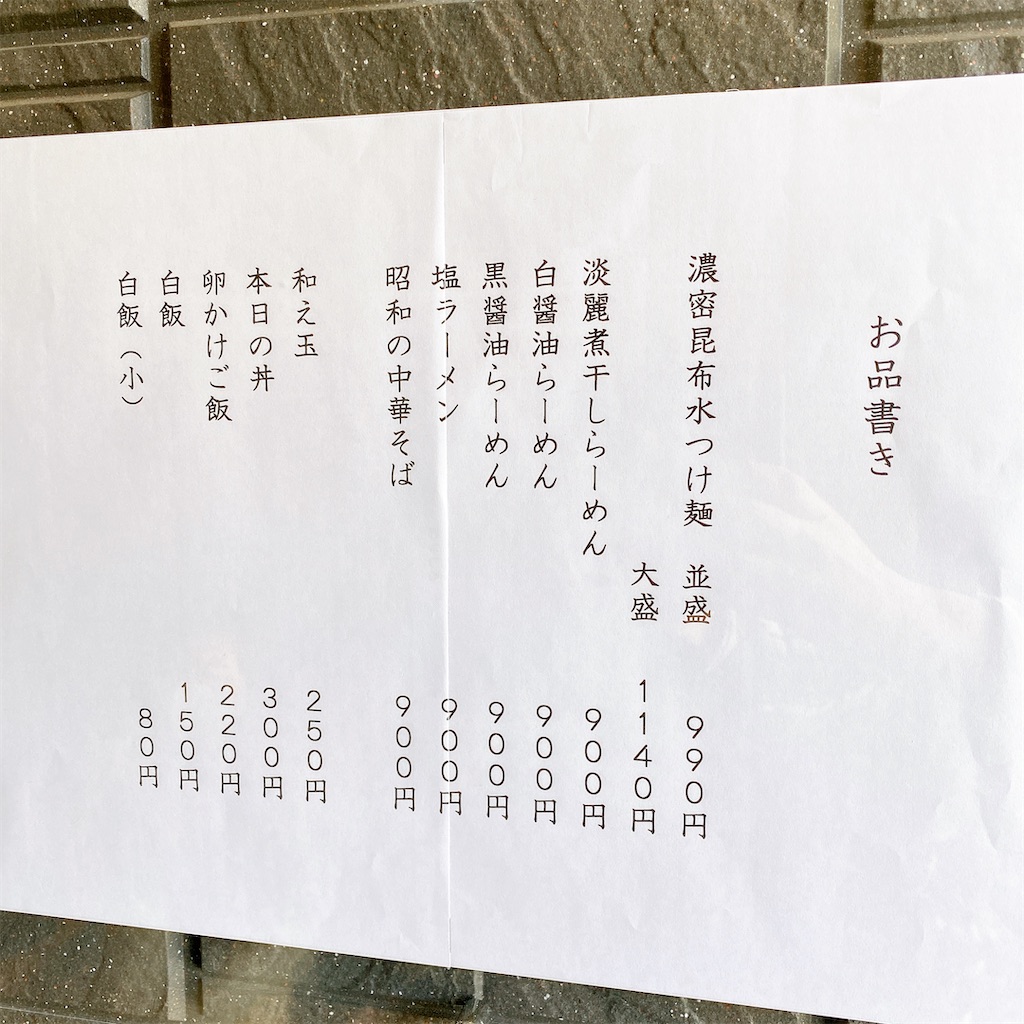 お品書き
濃密昆布水つけ麺 並盛 990円
大盛 1140円
淡麗煮干しらーめん 900円
白醤油らーめん 900円
黒醤油らーめん 900円
塩ラーメン 900円
昭和の中華そば 900円
和え玉 250円
本日の丼 300円
卵かけご飯 220円
白飯 150円
白飯（小） 80円